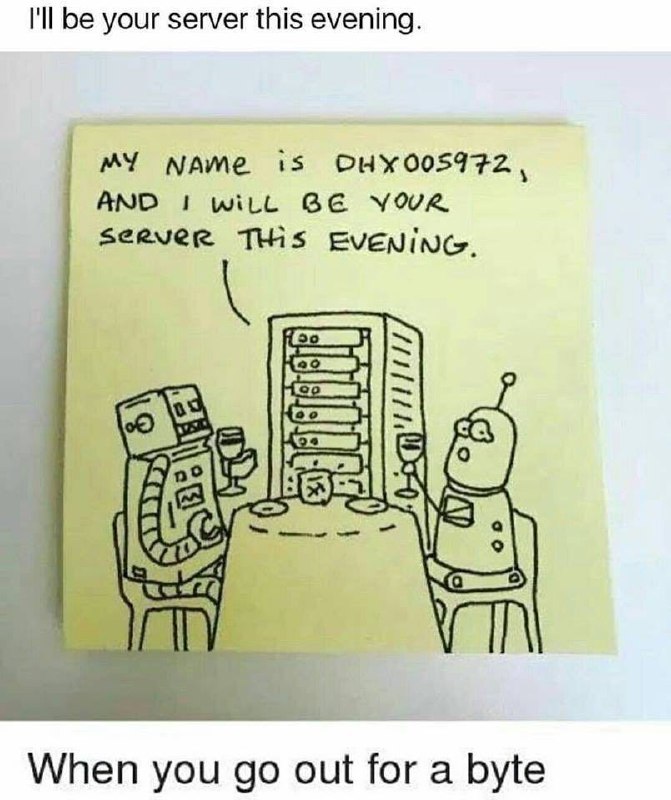 I'll be your server this evening.
MY NAME iS DHX005972,
AND I WiLL BE YOUR
SERVER THiS EVENiNG.
When you go out for a byte